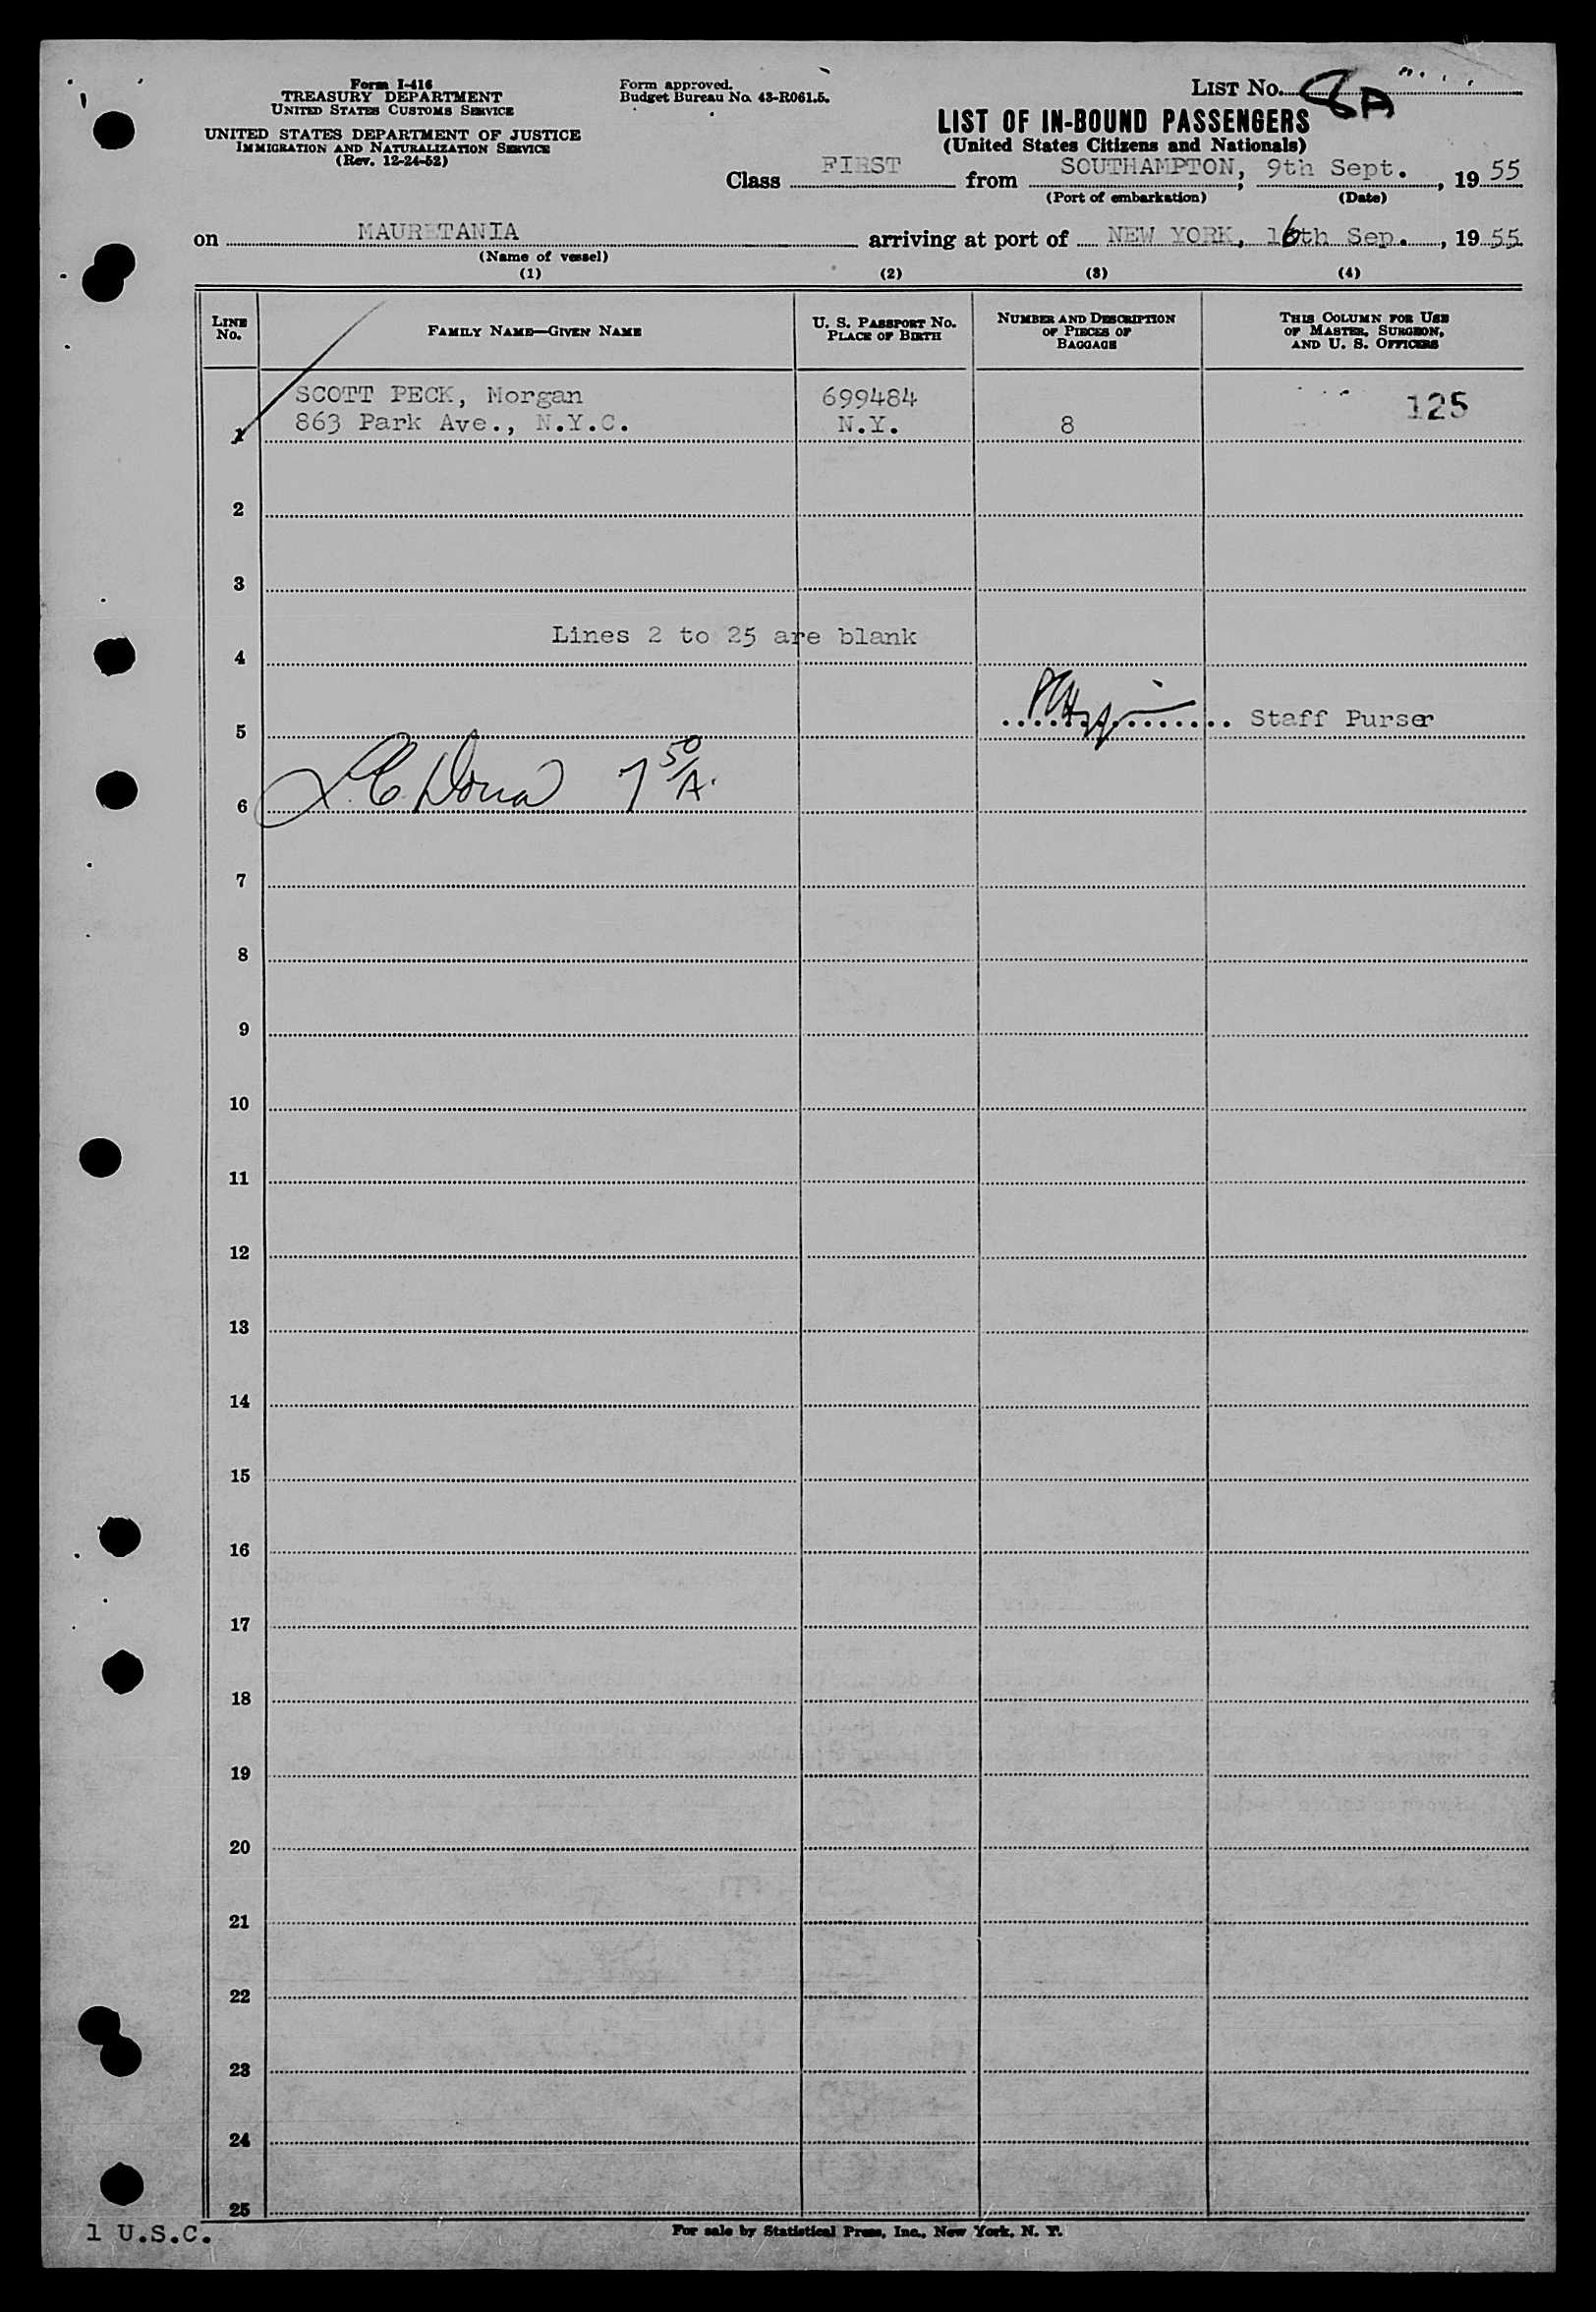 Form I-416
TREASURY DEPARTMENT
UNITED STATES CUSTOMS SERVICE
UNITED STATES DEPARTMENT OF JUSTICE
IMMIGRATION AND NATURALIZATION SERVICE
(Rev. 12-24-52)
Form approved.
Budget Bureau No. 43-R061.5.
LIST No. 8A
LIST OF IN-BOUND PASSENGERS
(United States Citizens and Nationals)
Class FIRST from SOUTHAMPTON, 9th Sept., 1955
(Port of embarkation) (Date)
on MAURETANIA arriving at port of NEW YORK, 16th Sep., 1955
(Name of vessel)
(1) (2) (3) (4)
LINE No. FAMILY NAME—GIVEN NAME U. S. PASSPORT No. PLACE OF BIRTH NUMBER AND DESCRIPTION OF PIECES OF BAGGAGE THIS COLUMN FOR USE OF MASTER, SURGEON, AND U. S. OFFICERS
SCOTT PECK, Morgan 699484 125
1 863 Park Ave., N.Y.C. N.Y. 8
2
3
Lines 2 to 25 are blank
4
Staff Purser
5
6 7 50/A.
7
8
9
10
11
12
13
14
15
16
17
18
19
20
21
22
23
24
25
1 U.S.C.
For sale by Statistical Press, Inc., New York, N. Y.